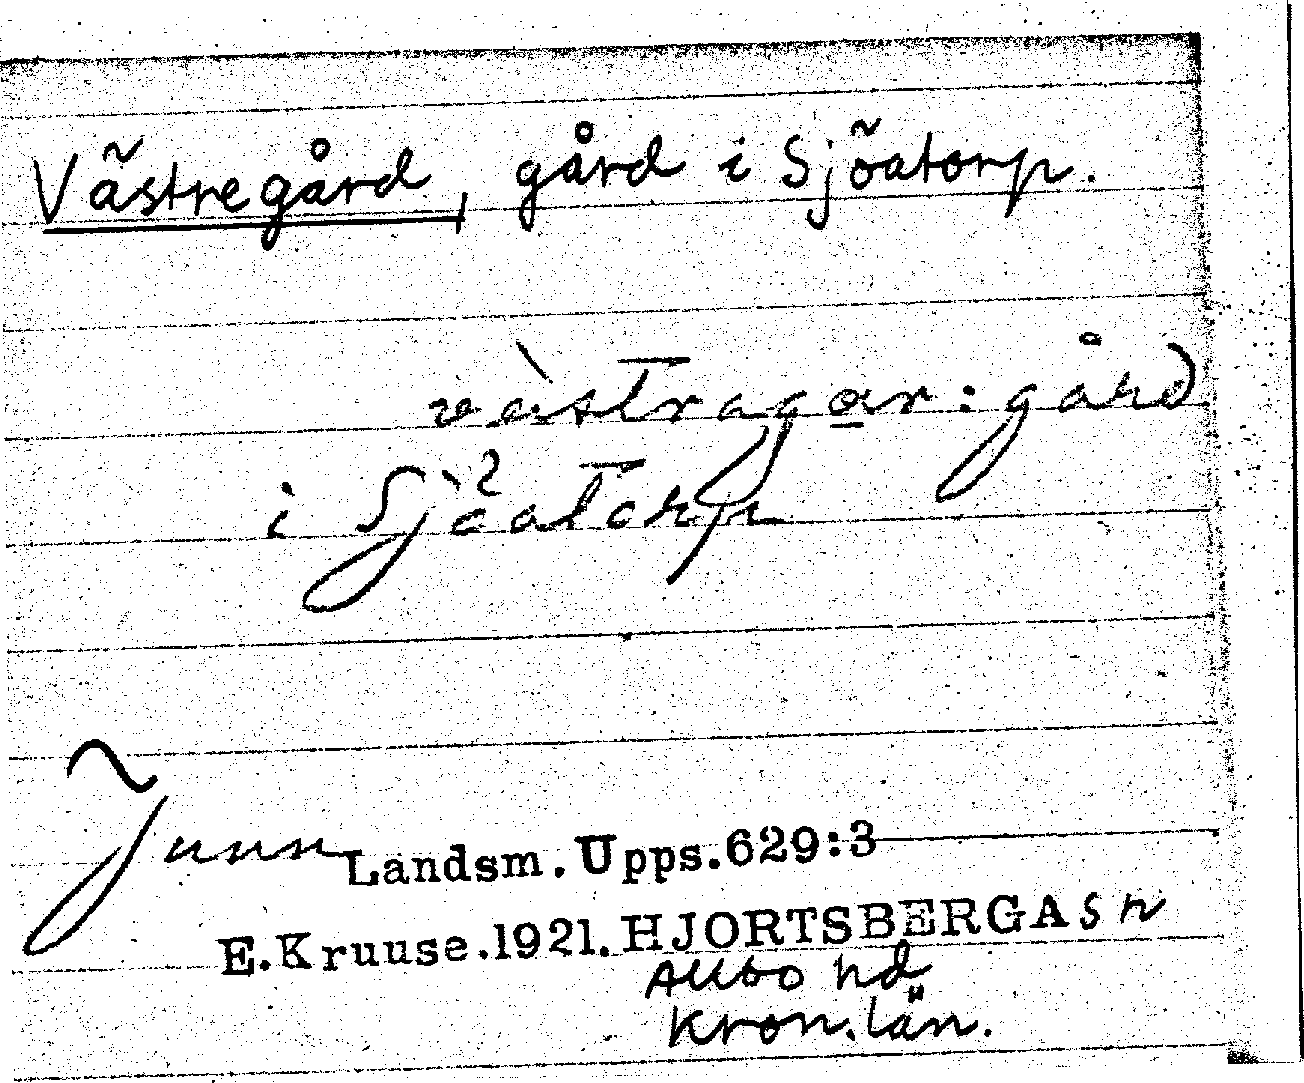 Västregård, gård i Sjöatorp.
västragår: gård
i Sjöatorp
Junn
Landsm. Upps. 629:3
E. Kruuse. 1921. HJORTSBERGA sn
Allbo hd
Kron. län.